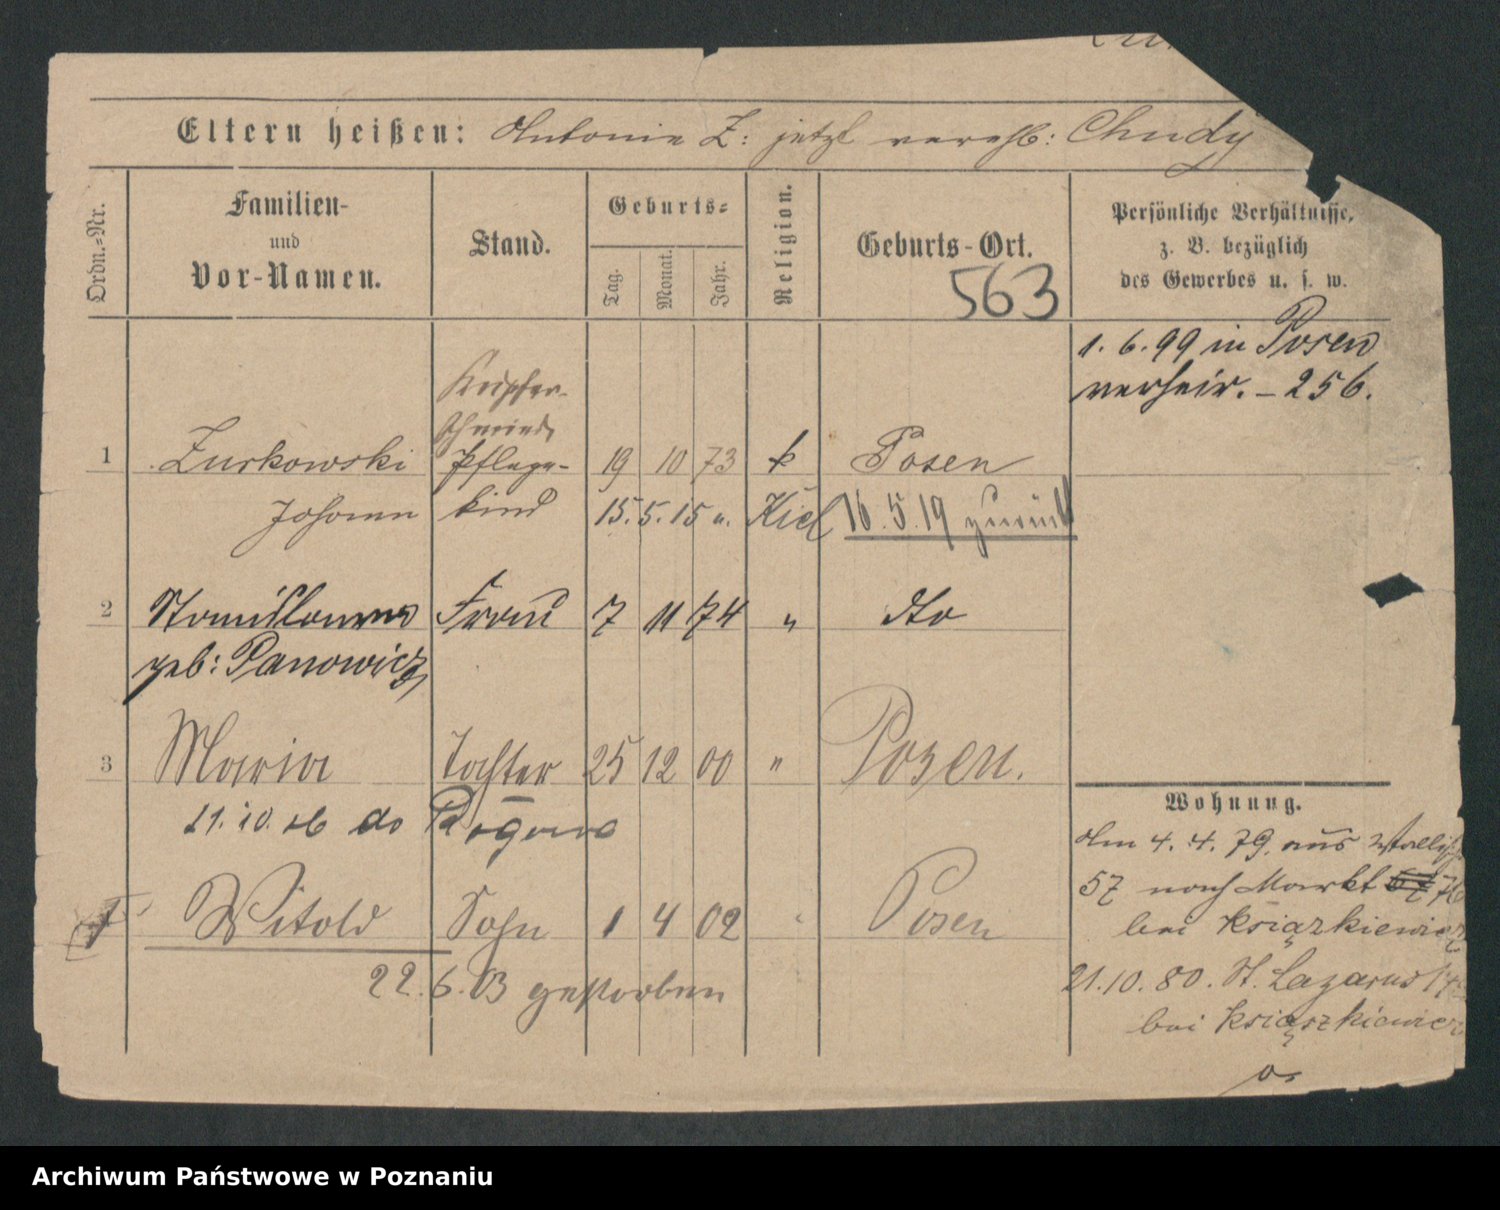 Eltern heißen: Antonie Z: jetzt verehl: Chudy
Ordn.=Nr.
Familien-
und
Vor-Namen.
Stand.
Geburts=
Tag.
Monat.
Jahr.
Religion.
Geburts-Ort.
563
Persönliche Verhältnisse,
z. B. bezüglich
des Gewerbes u. s. w.
1. 6. 99 in Posen
verheir. - 256.
Kupfer-
schmied
1 Zurkowski Pflege- 19 10 73 k Posen
Johann kind 15. 5. 15 n. Kiel 16. 5. 19 zurück
2 Stanislawa Frau 7 11 74 " dto
geb: Panowicz
3 Maria Tochter 25 12 00 " Posen.
11. 10. 16 do Rogowo
Witold Sohn 1 4 02 " Posen
22. 6. 03 gestorben
Wohnung.
Am 4. 4. 79. aus Wallisch
57 nach Markt 57 76
bei Książkiewicz
21. 10. 80. St. Lazarus
bei Książkiewicz
Archiwum Państwowe w Poznaniu